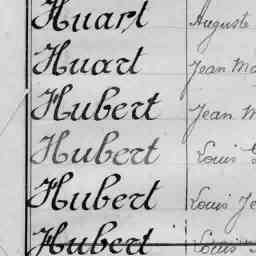 Huart Auguste
Huart Jean
Hubert Jean
Hubert Louis
Hubert Louis
Hubert Louis